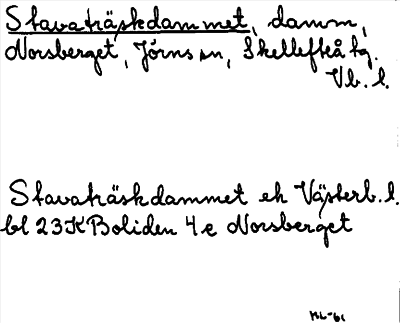 Stavaträskdammet, damm,
Norsberget, Jörns sn, Skellefteå tg.
Vb. l.
Stavaträskdammet ek Västerb. l.
bl 23K Boliden 4e Norsberget
ML-61